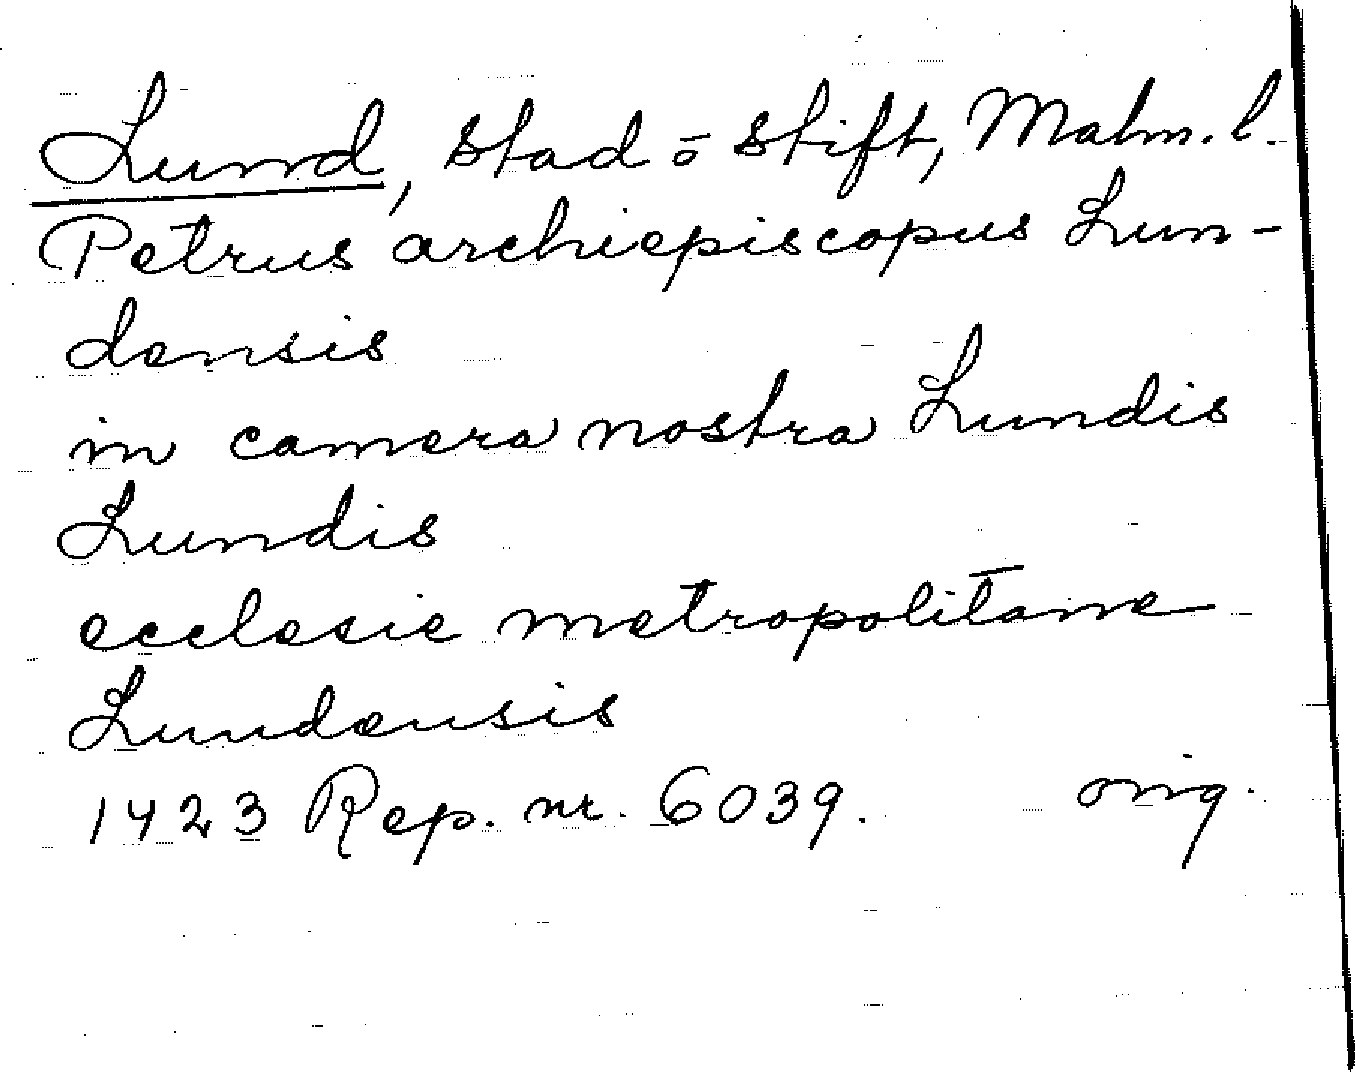 Lund, stad o stift, Malm. l.
Petrus archiepiscopus Lun-
densis
in camera nostra Lundis
Lundis
ecclesie metropolitane
Lundensis
1423 Rep. nr. 6039. orig.